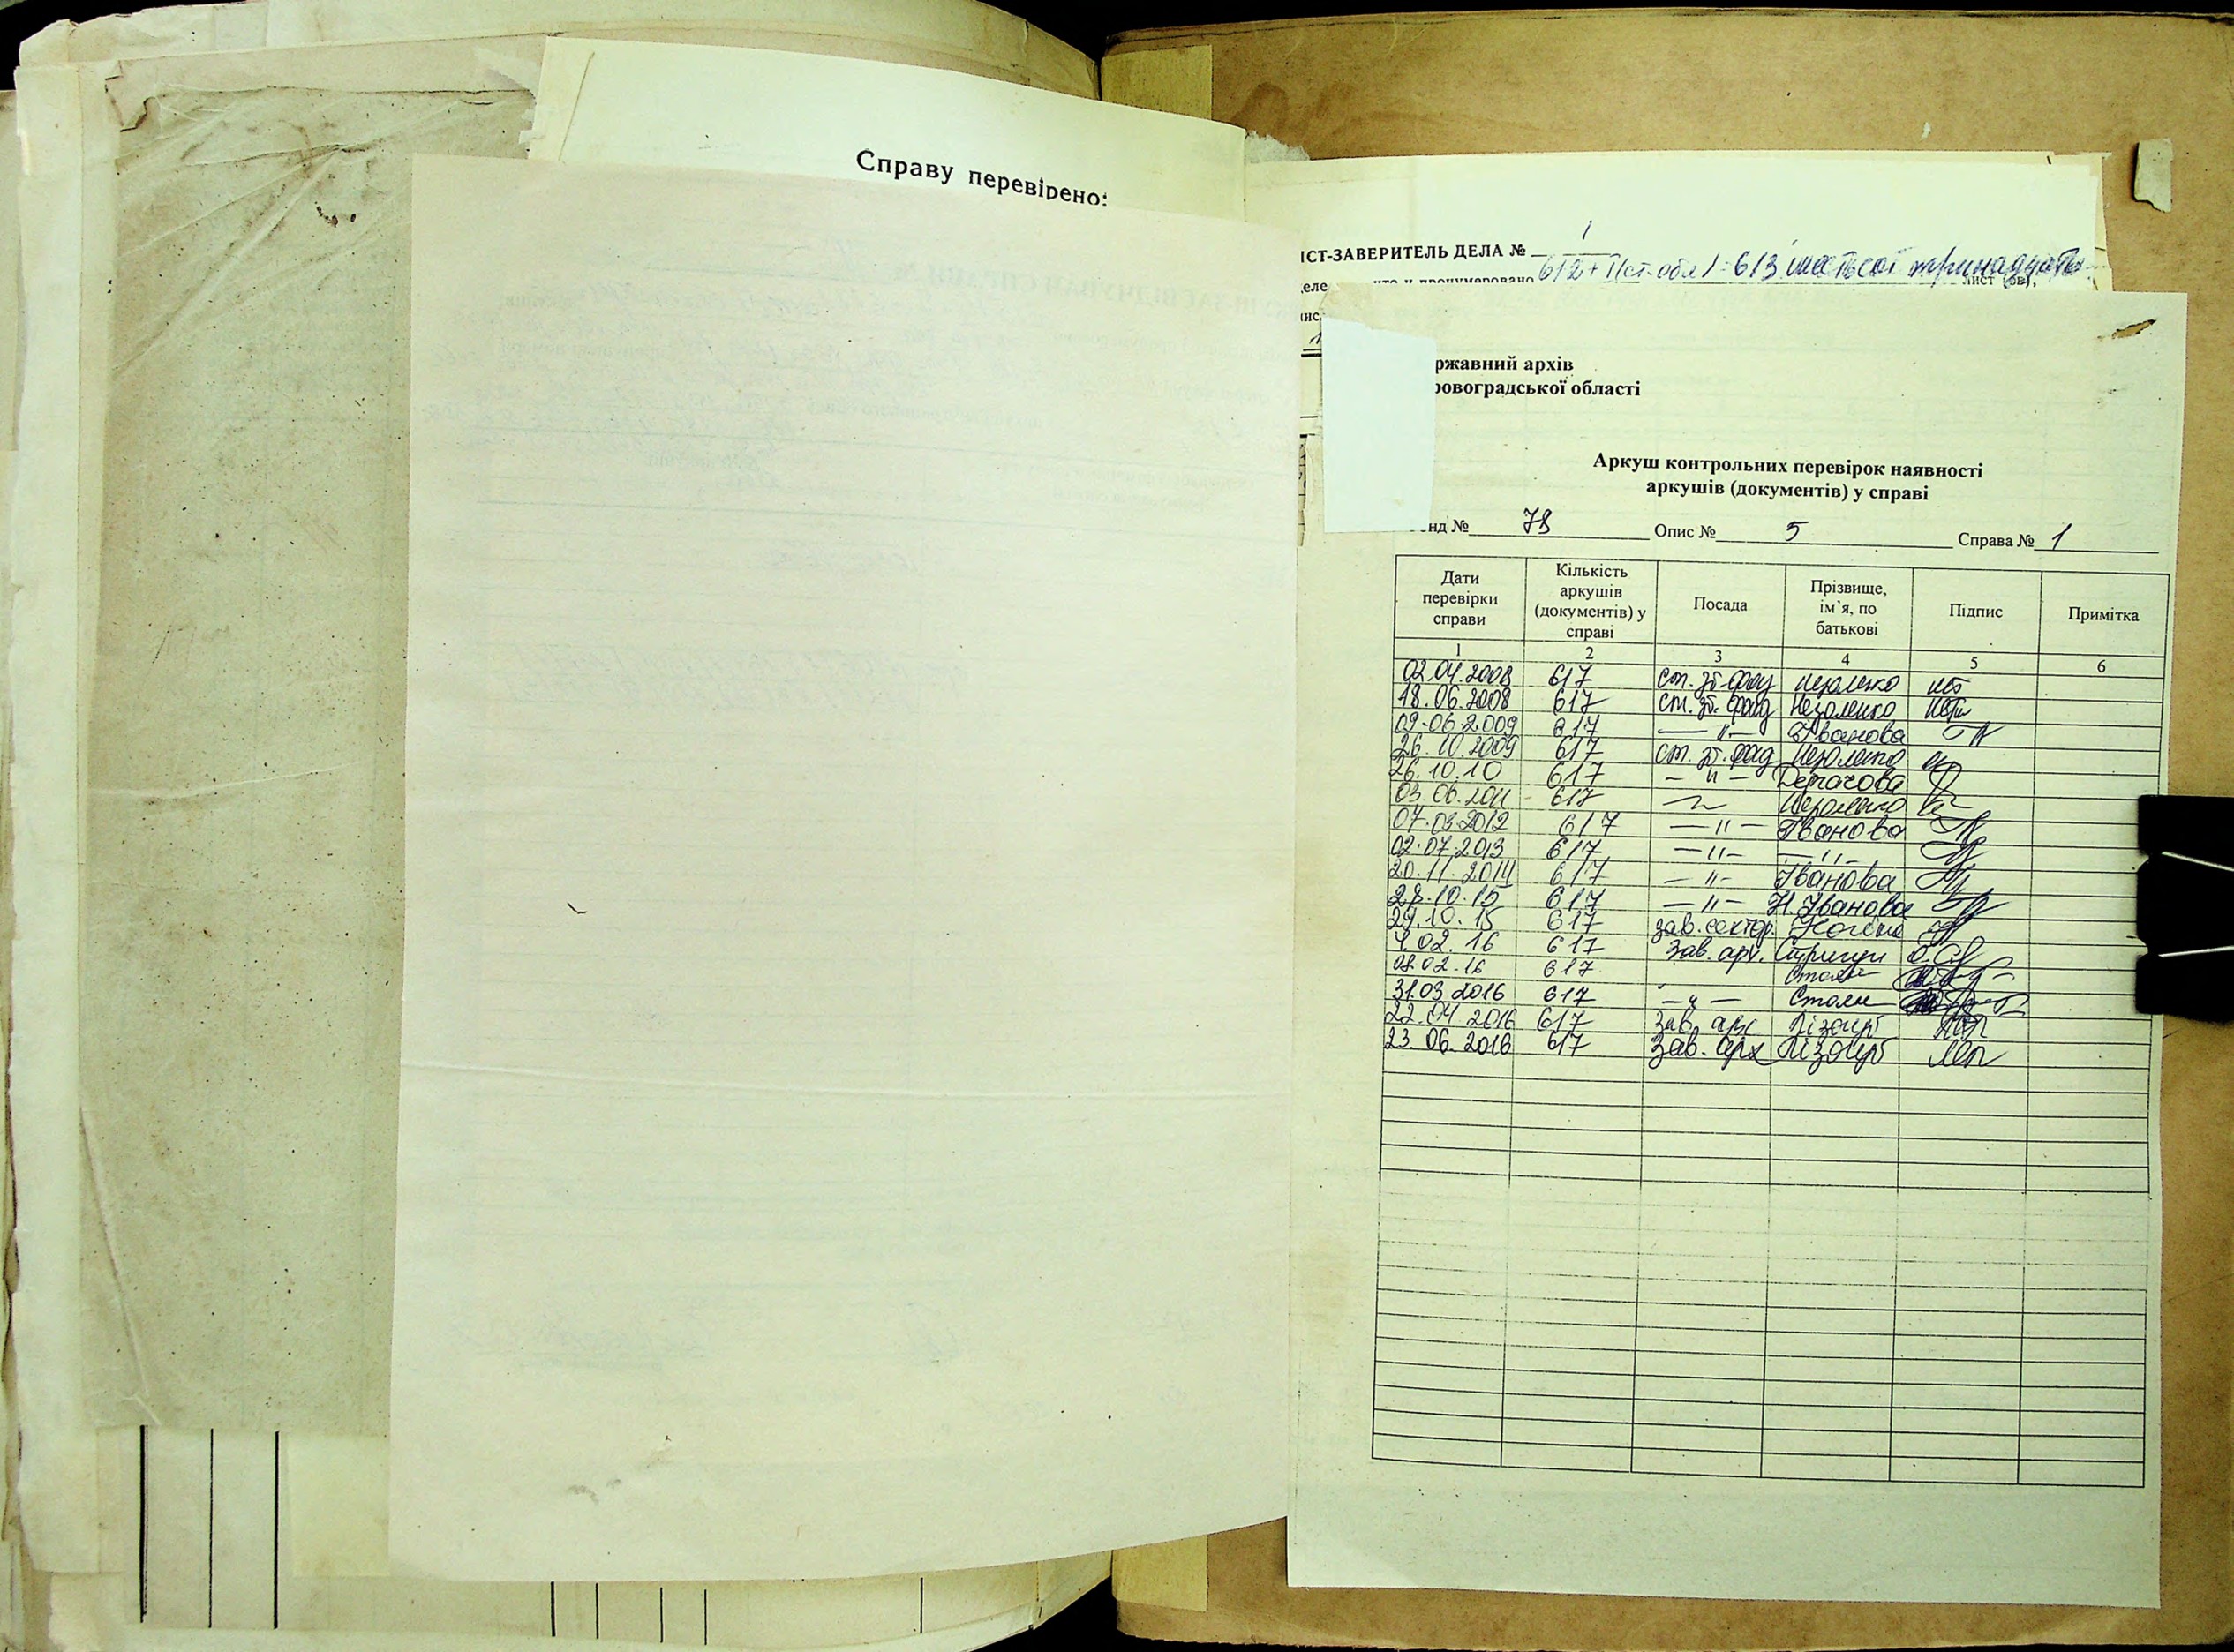 Справу перевірено:
ИСТ-ЗАВЕРИТЕЛЬ ДЕЛА № 1
деле что и пронумеровано 612+1(ст. обл)-613 шестьсот тринадцать лист (ов),
ржавний архів
ровоградської області
Аркуш контрольних перевірок наявності
аркушів (документів) у справі
нд № 78 Опис № 5 Справа № 1
Дати перевірки справи Кількість аркушів (документів) у справі Посада Прізвище, ім’я, по батькові Підпис Примітка
1 2 3 4 5 6
02.04.2008 617 ст. зб. фонд Незоленко
18.06.2008 617 ст. зб. фонд Незоленко
09.06.2009 617 —"— Іванова
26.10.2009 617 ст. зб. фонд Незоленко
26.10.10 617 —"— Деркачова
03.06.2011 617 Незоленко
07.03.2012 617 —"— Іванова
02.07.2013 617 —"— —"—
20.11.2014 617 —"— Іванова
28.10.15 617 —"— Н Іванова
29.10.15 617 зав. сектор.
4.02.16 617 Зав. арх.
08.02.16 617
31.03.2016 617 —"—
22.04.2016 617 Зав. арх
23.06.2016 617 Зав. арх